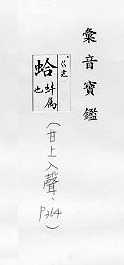 彙音寶鑑
蛤 蚌屬也
(甘上入聲、P264)